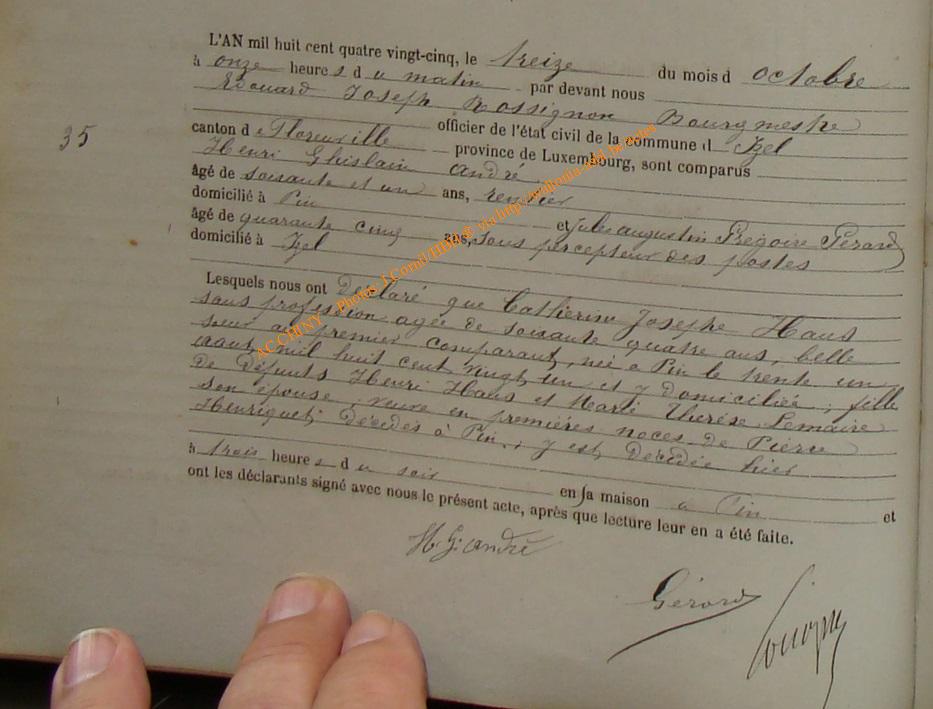 L'AN mil huit cent quatre vingt-cinq, le treize du mois d octobre
à onze heures du matin par devant nous
Edouard Joseph Rossignon Bourgmestre
35
officier de l'état civil de la commune d Izel
canton de Florenville province de Luxembourg, sont comparus
Henri Ghislain André
âgé de soixante et un ans, rentier
domicilié à Pin et Jules Augustin Grégoire Gérard
âgé de quarante cinq ans, sous percepteur des postes
domicilié à Izel
Lesquels nous ont déclaré que Catherine Josephe Haus
sans profession agée de soixante quatre ans, belle
sœur au premier comparant, née à Pin le trente un
août mil huit cent vingt un et y domiciliée, fille
de défunts Henri Haus et Marie Therèse Lemaire
son épouse, veuve en premières noces de Pierre
Henriquet, décédés à Pin, y est décédée hier
à trois heures du soir en sa maison à Pin et
ont les déclarants signé avec nous le présent acte, après que lecture leur en a été faite.
H. G. André
Gérard
AC CHINY - Photos J.Cornil/HDB@ via http://wallonia-asbl.be/actes